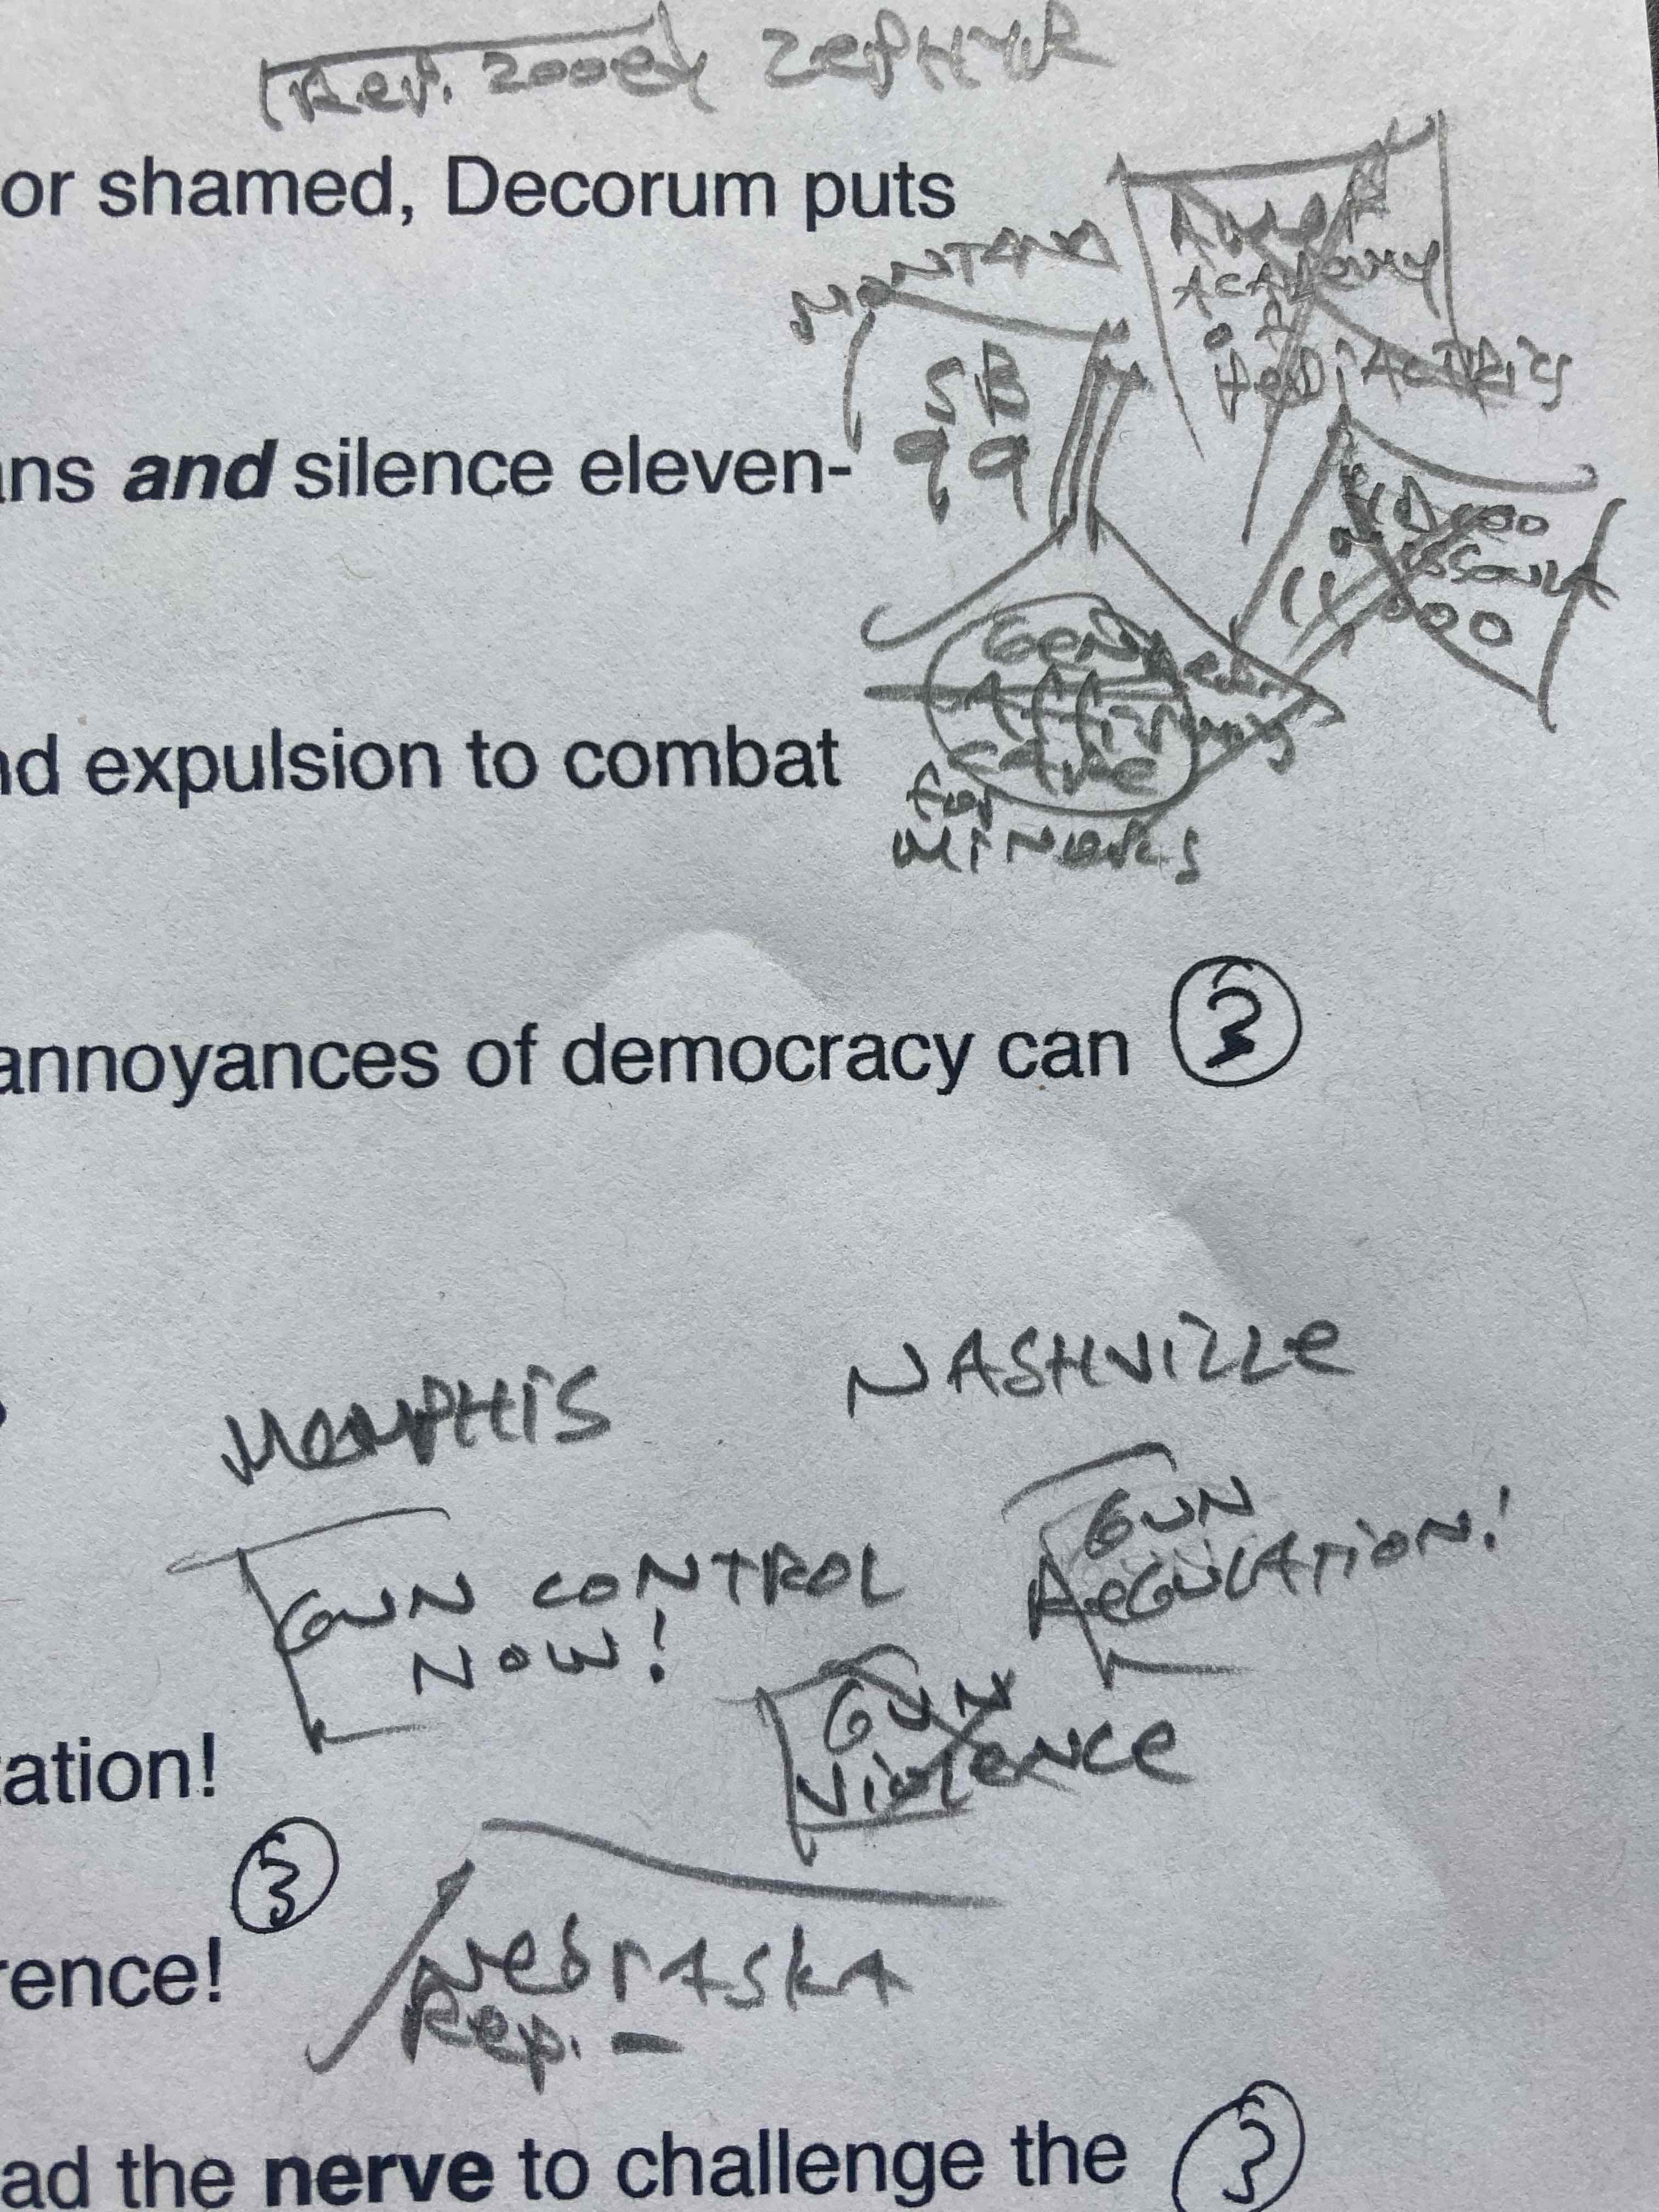 Rep. Zooey ZePHYR
or shamed, Decorum puts
MONTANA
SB
99
AMER
ACADemy
of
PeDiATRics
ans and silence eleven-
000
Gender
Affirming
CAre
for
MiNors
nd expulsion to combat
annoyances of democracy can 3
MemPHiS
NASHViLLe
GUN CONTROL
NOW!
GUN
ReGULATiON!
GUN
ViOLeNCe
tation!
3
rence!
NebrASkA
Rep. -
ad the nerve to challenge the 3